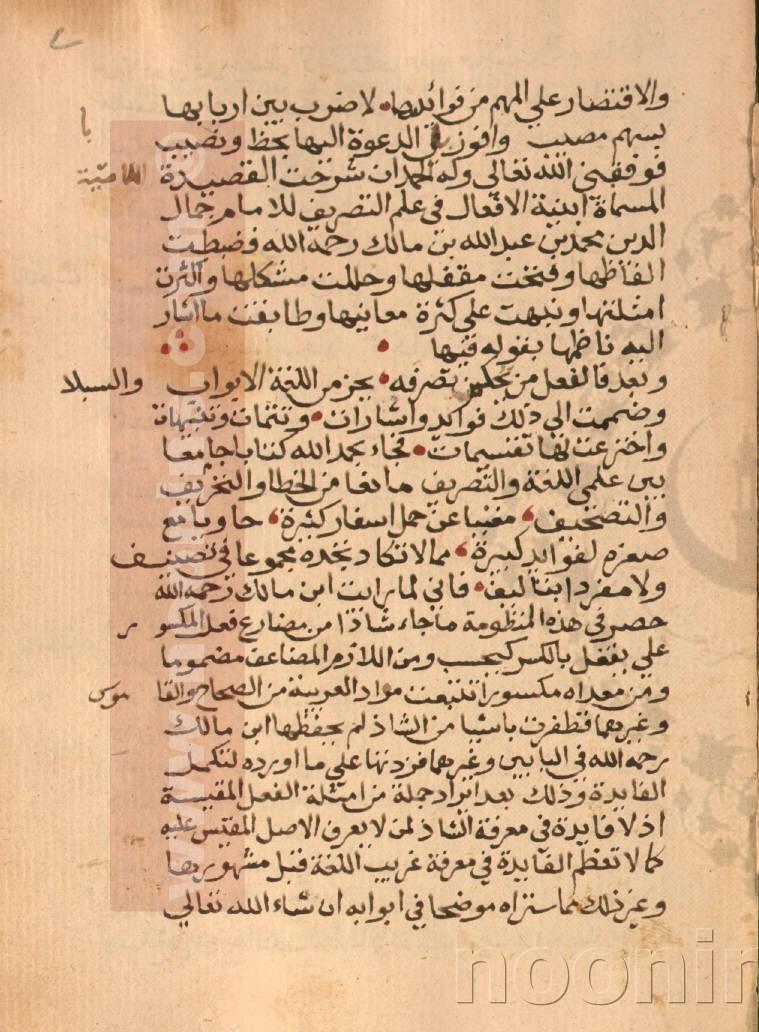 والاقتصار علي المهم من فوائدها لاضرب بين اربابها
بسهم مصيب وافوز في الدعوة اليها بحظ ونصيب
فوفقني الله تعالي وله الحمد ان شرحت القصيدة اللامية
المسماة ابنية الافعال في علم التصريف للامام جمال
الدين محمد بن عبدالله بن مالك رحمه الله فضبطت
الفاظها وفتحت مقفلها وحللت مشكلها واكثرت
امثلتها ونبهت علي كثرة معانيها وطابقت ما اشار
اليه ناظمها بقوله فيها
وبعد فالفعل من يحكم تصرفه يحز من اللغة الابواب والسبلا
وضممت الي ذلك فوائد واشارات وتتمات وتنبيهات
واخترعت لها تقسيمات فجاء بحمد الله كتابا جامعا
بين علمي اللغة والتصريف مانعا من الخطا والتحريف
والتصحيف مغنيا عن حمل اسفار كثيرة حاويا مع
صغره لفوايد كبيرة مما لا تكاد تجده مجموعا في تصنيف
ولا مفردا بتاليف فاني لما رايت ابن مالك رحمه الله
حصر في هذه المنظومة ما جاء شاذا من مضارع فعل المكسور
علي يفعل بالكسر كيحسب ومن اللازم المضاعف مضموما
ومن معداه مكسورا تتبعت مواد العربية من الصحاح والقاموس
وغيرهما فظفرت باشيا من الشاذ لم يحفظها ابن مالك
رحمه الله في البابين وغيرهما فزدتها علي ما اورده لتكمل
الفايدة وذلك بعد ايراد جملة من امثلة الفعل المقيسة
اذ لا فايدة في معرفة الشاذ لمن لا يعرف الاصل المقيس عليه
كما لا تعظم الفايدة في معرفة غريب اللغة قبل مشهورها
وغير ذلك مما ستراه موضحا في ابوابه ان شاء الله تعالي
noonin